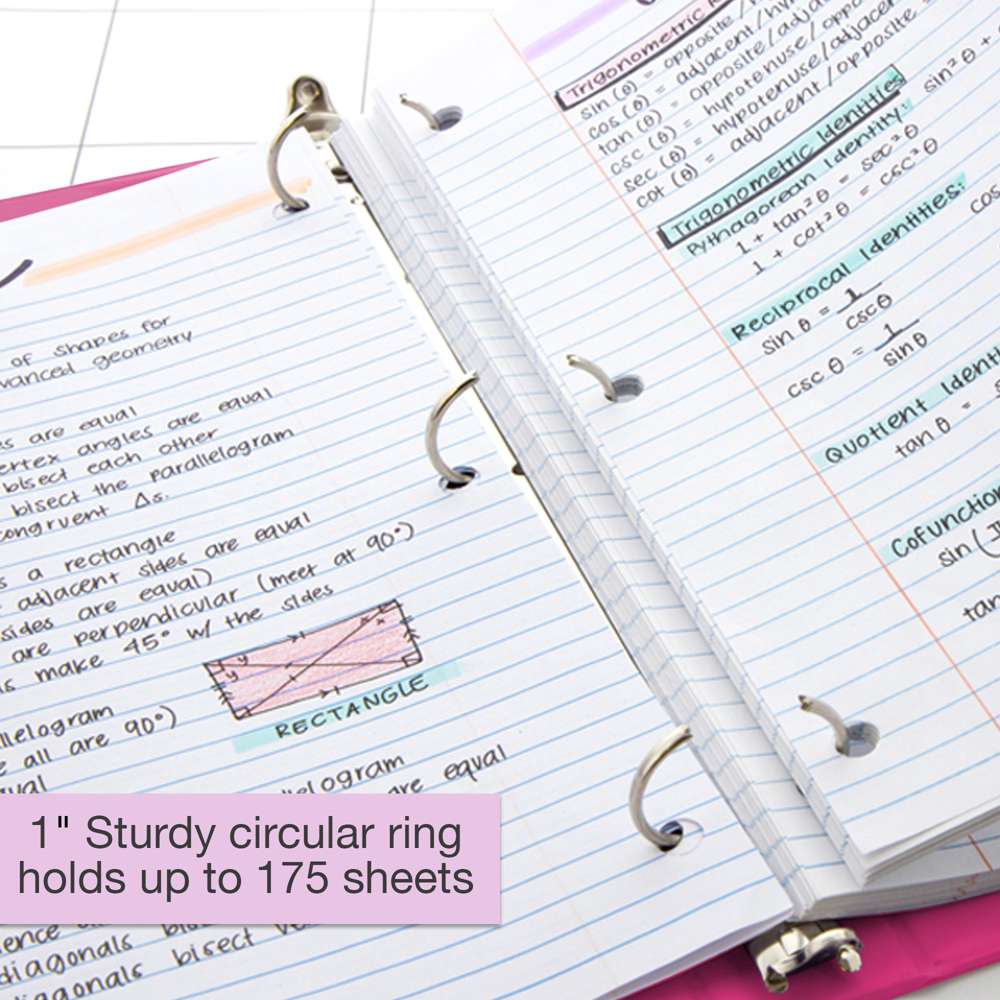 of shapes for
vanced geometry
es are equal
ertex angles are equal
bisect each other
bisect the parallelogram
congruent Δs.
s a rectangle
adjacent sides are equal
sides are equal)
are perpendicular (meet at 90°)
s make 45° w/ the sides
y y x x
RECTANGLE
llelogram
e all are 90°)
ual
llelogram
are equal
1" Sturdy circular ring
holds up to 175 sheets
diagonals
diagonals bisect
Trigonometric
sin (θ) = opposite/
cos (θ) = adjacent/hy
tan (θ) = opposite/adja
csc (θ) = hypotenuse/oppo
sec (θ) = hypotenuse/adjacen
cot (θ) = adjacent/opposite
Trigonometric Identities
Pythagorean Identity: sin²θ +
1 + tan²θ = sec²θ
1 + cot²θ = csc²θ
Reciprocal Identities:
sin θ = 1/cscθ cos
csc θ = 1/sinθ
Quotient Identi
tan θ =
Cofunction
sin(
tan